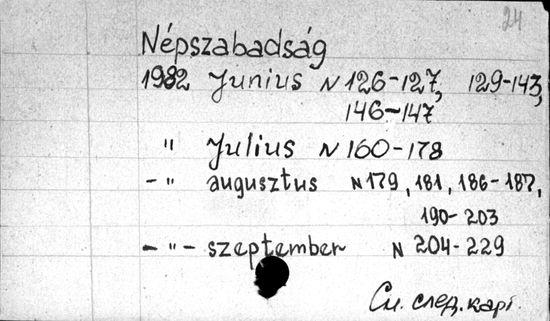 24
Népszabadság
1982 Junius N 126-127, 129-143,
146-147
" Julius N 160-178
-"- augusztus N 179, 181, 186-187,
190-203
-"- szeptember N 204-229
См. след. карт.